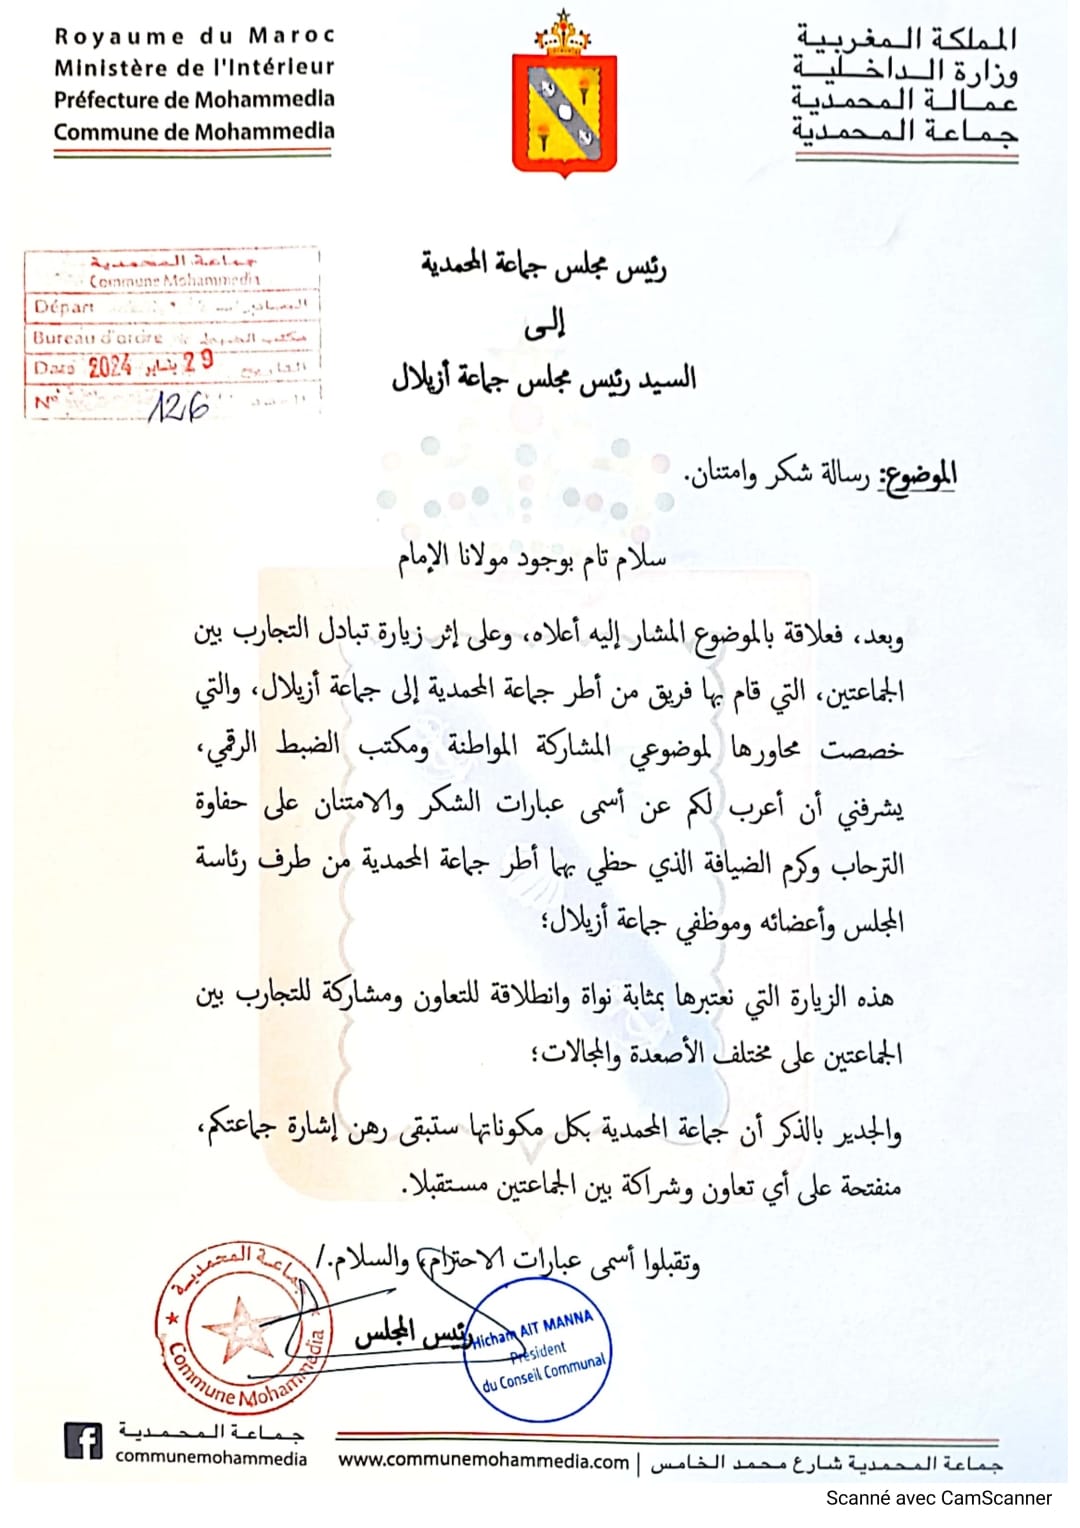 Royaume du Maroc
Ministère de l'Intérieur
Préfecture de Mohammedia
Commune de Mohammedia
المملكة المغربية
وزارة الداخلية
عمالة المحمدية
جماعة المحمدية
جماعة المحمدية
Commune Mohammedia
Départ
Bureau d'ordre مكتب الضبط
Date 2024 يناير 29 التاريخ
N° 126
رئيس مجلس جماعة المحمدية
إلى
السيد رئيس مجلس جماعة أزيلال
الموضوع: رسالة شكر وامتنان.
سلام تام بوجود مولانا الإمام
وبعد، فعلاقة بالموضوع المشار إليه أعلاه، وعلى إثر زيارة تبادل التجارب بين
الجماعتين، التي قام بها فريق من أطر جماعة المحمدية إلى جماعة أزيلال، والتي
خصصت محاورها لموضوعي المشاركة المواطنة ومكتب الضبط الرقمي،
يشرفني أن أعرب لكم عن أسمى عبارات الشكر والامتنان على حفاوة
الترحاب وكرم الضيافة الذي حظي بها أطر جماعة المحمدية من طرف رئاسة
المجلس وأعضائه وموظفي جماعة أزيلال؛
هذه الزيارة التي نعتبرها بمثابة نواة وانطلاقة للتعاون ومشاركة للتجارب بين
الجماعتين على مختلف الأصعدة والمجالات؛
والجدير بالذكر أن جماعة المحمدية بكل مكوناتها ستبقى رهن إشارة جماعتكم،
منفتحة على أي تعاون وشراكة بين الجماعتين مستقبلا.
وتقبلوا أسمى عبارات الاحترام، والسلام./
رئيس المجلس
جماعة المحمدية
Commune Mohammedia
Hicham AIT MANNA
Président
du Conseil Communal
جماعة المحمدية
communemohammedia
www.communemohammedia.com | جماعة المحمدية شارع محمد الخامس
Scanné avec CamScanner